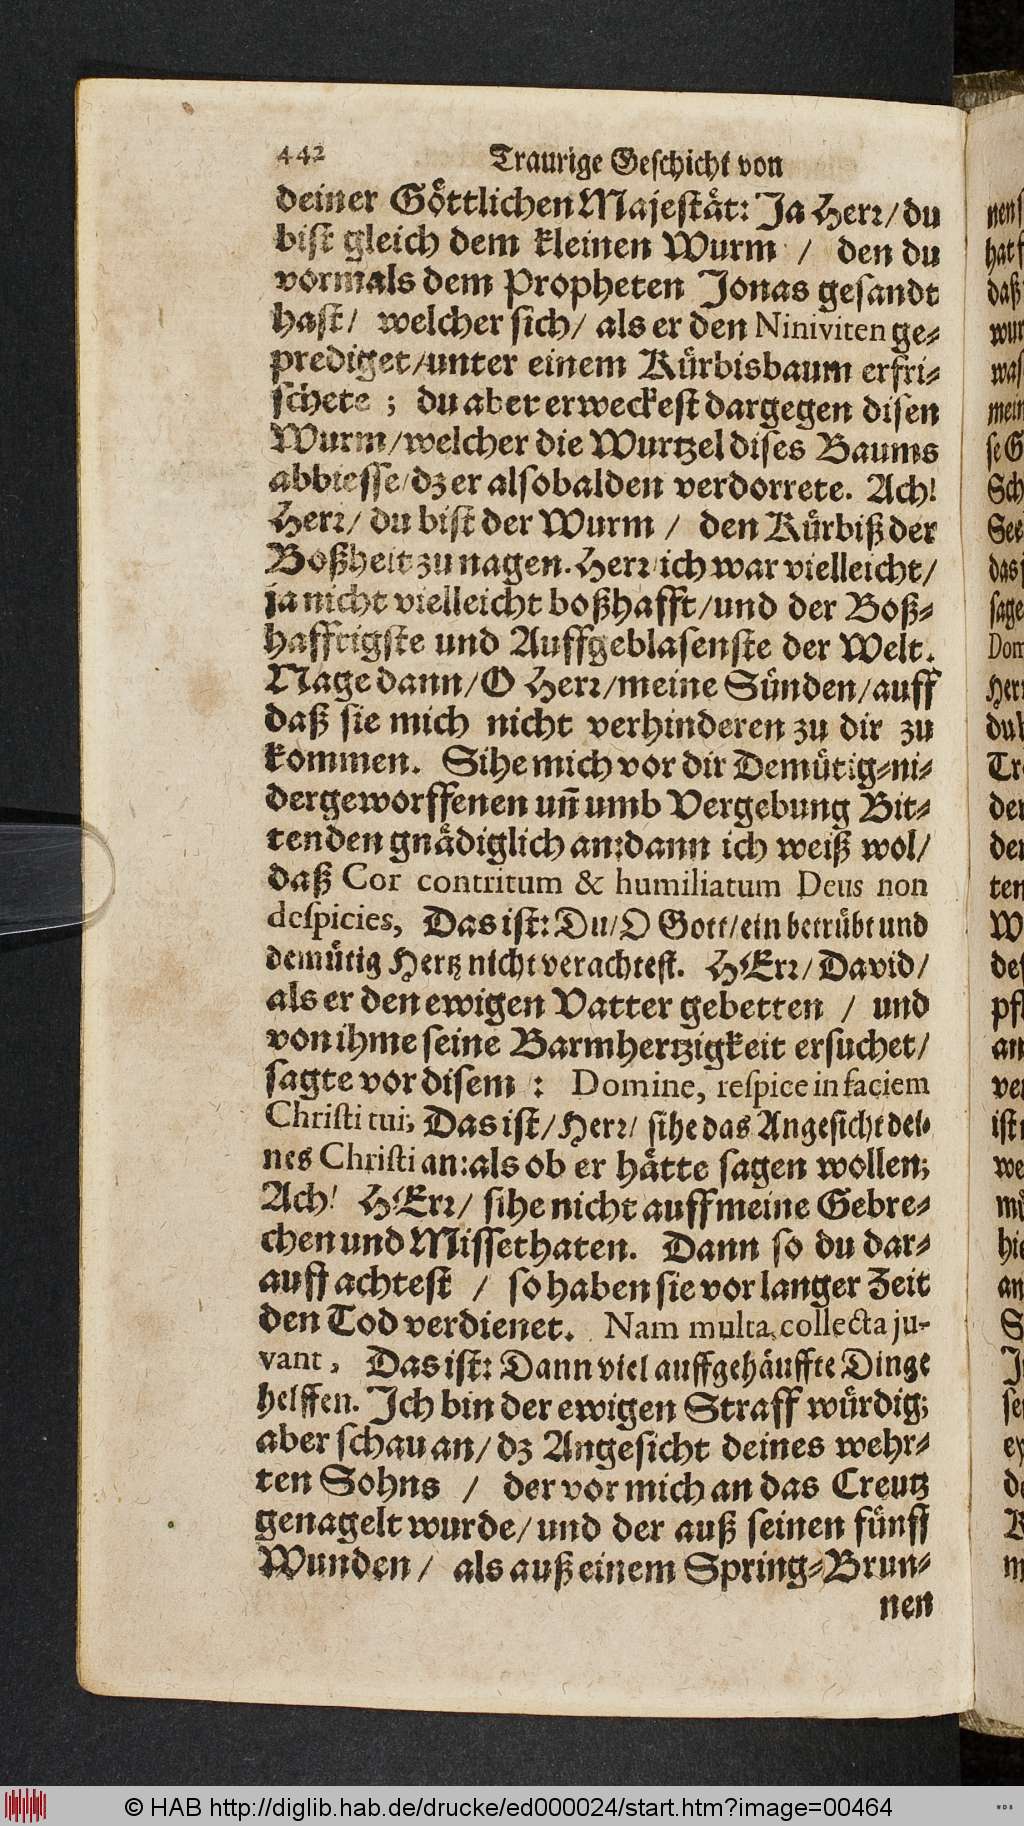 442 Traurige Geschicht von
deiner Göttlichen Majestät: Ja Herr/du
bist gleich dem kleinen Wurm / den du
vormals dem Propheten Jonas gesandt
hast/ welcher sich/ als er den Niniviten ge-
prediget/unter einem Kürbisbaum erfri-
schete ; du aber erweckest dargegen disen
Wurm/welcher die Wurtzel dises Baums
abbiesse/dz er alsobalden verdorrete. Ach!
Herr/ du bist der Wurm / den Kürbiß der
Boßheit zu nagen. Herr ich war vielleicht/
ja nicht vielleicht boßhafft/und der Boß-
hafftigste und Auffgeblasenste der Welt.
Nage dann/O Herr/meine Sünden/auff
daß sie mich nicht verhinderen zu dir zu
kommen. Sihe mich vor dir Demütig-ni-
dergeworffenen uñ umb Vergebung Bit-
tenden gnädiglich an:dann ich weiß wol/
daß Cor contritum & humiliatum Deus non
despicies, Das ist: Du/O Gott/ein betrübt und
demütig Hertz nicht verachtest. HErr/David/
als er den ewigen Vatter gebetten / und
von ihme seine Barmhertzigkeit ersuchet/
sagte vor disem : Domine, respice in faciem
Christi tui, Das ist/Herr/ sihe das Angesicht dei-
nes Christi an:als ob er hätte sagen wollen;
Ach! HErr/ sihe nicht auff meine Gebre-
chen und Missethaten. Dann so du dar-
auff achtest / so haben sie vor langer Zeit
den Tod verdienet. Nam multa collecta ju-
vant, Das ist: Dann viel auffgehäuffte Dinge
helffen. Ich bin der ewigen Straff würdig;
aber schau an/dz Angesicht deines wehr-
ten Sohns / der vor mich an das Creutz
genagelt wurde/und der auß seinen fünff
Wunden/ als auß einem Spring-Brun-
nen
© HAB http://diglib.hab.de/drucke/ed000024/start.htm?image=00464